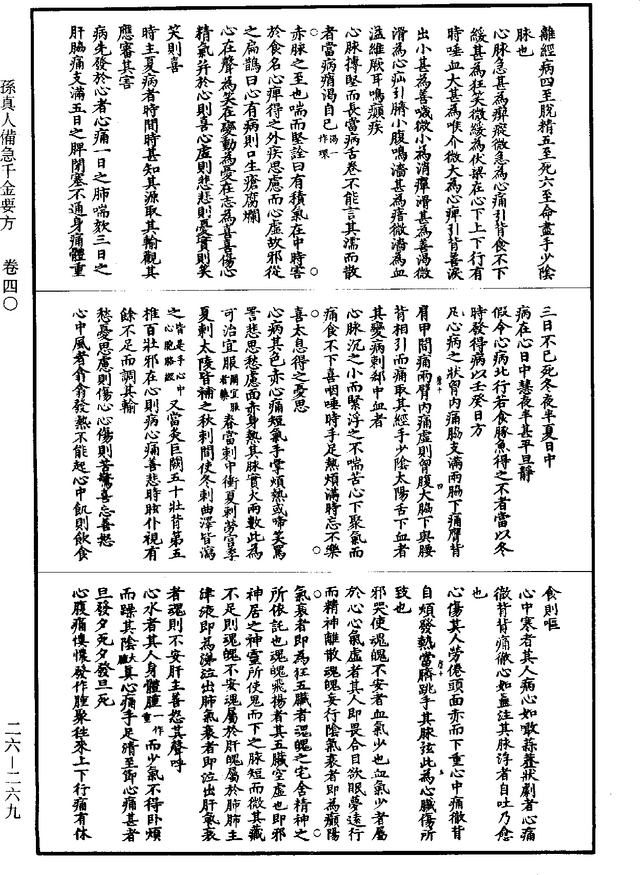 離經病四至脫精五至死六至命盡手少陰
脉也
心脉急甚為瘈瘲微急為心痛引背食不下
緩甚為狂笑微緩為伏梁在心下上下行有
時唾血大甚為喉介微大為心痹引背善淚
出小甚為善噦微小為消癉滑甚為善渴微
滑為心疝引臍小腹鳴濇甚為瘖微濇為血
溢維厥耳鳴癲疾
心脉搏堅而長當病舌卷不能言其濡而散
者當病消渴自已渴一作環
赤脉之至也喘而堅診曰有積氣在中時害
於食名心痹得之外疾思慮而心虛故邪從
之扁鵲曰心有病則口生瘡腐爛
心在聲為笑在變動為憂在志為喜喜傷心
精氣并於心則喜心虛則悲悲則憂實則笑
笑則喜
時主夏病者時間時甚知其源取其輸觀其
應審其害
病先發於心者心痛一日之肺喘欬三日之
肝脇痛支滿五日之脾閉塞不通身痛體重
三日不已死冬夜半夏日中
病在心日中慧夜半甚平旦靜
假令心病北行若食豚魚得之不者當以冬
時發得病以壬癸日方
凡心病之狀胷內痛脇支滿兩脇下痛膺背
肩甲間痛兩臂內痛虛則胷腹大脇下與腰
背相引而痛取其經手少陰太陽舌下血者
其變病刺郄中血者
心脉沉之小而緊浮之不喘苦心下聚氣而
痛食不下喜咽唾時手足熱煩滿時忘不樂
喜太息得之憂思
心病其色赤心痛短氣手掌煩熱或啼笑罵
詈悲思愁慮面赤身熱其脉實大而數此為
可治宜服春當刺中衝夏刺勞宮季
夏刺太陵皆補之秋刺間使冬刺曲澤皆瀉
之皆是手心中心胞胳經又當灸巨闕五十壯背第五
椎百壯邪在心則病心痛善悲時眩仆視有
餘不足而調其輸
愁憂思慮則傷心心傷則苦驚喜忘善怒
心中風者翕翕發熱不能起心中飢則飲食
食則嘔
心中寒者其人病心如噉蒜虀狀劇者心痛
徹背背痛徹心如蠱注其脉浮者自吐乃愈
也
心傷其人勞倦頭面赤而下重心中痛徹背
自煩發熱當臍跳手其脉弦此為心臟傷所
致也
邪哭使魂魄不安者血氣少也血氣少者屬
於心心氣虛者其人即畏合目欲眠夢遠行
而精神離散魂魄妄行陰氣衰者即為癲陽
氣衰者即為狂五臟者魂魄之宅舍精神之
所依託也魂魄飛揚者其五臟空虛也即邪
神居之神靈所使鬼而下之脉短而微其藏
不足則魂魄不安魂屬於肝魄屬於肺肺主
津液即為涕泣出肺氣衰者即泣出肝氣衰
者魂則不安肝主善怒其聲呼
心水者其人身體腫一作重而少氣不得卧煩
而躁其陰大腫真心痛手足清至節心痛甚者
旦發夕死夕發旦死
心腹痛懊憹發作腫聚往來上下行痛有休
孫真人備急千金要方
卷四〇
二六—二六九